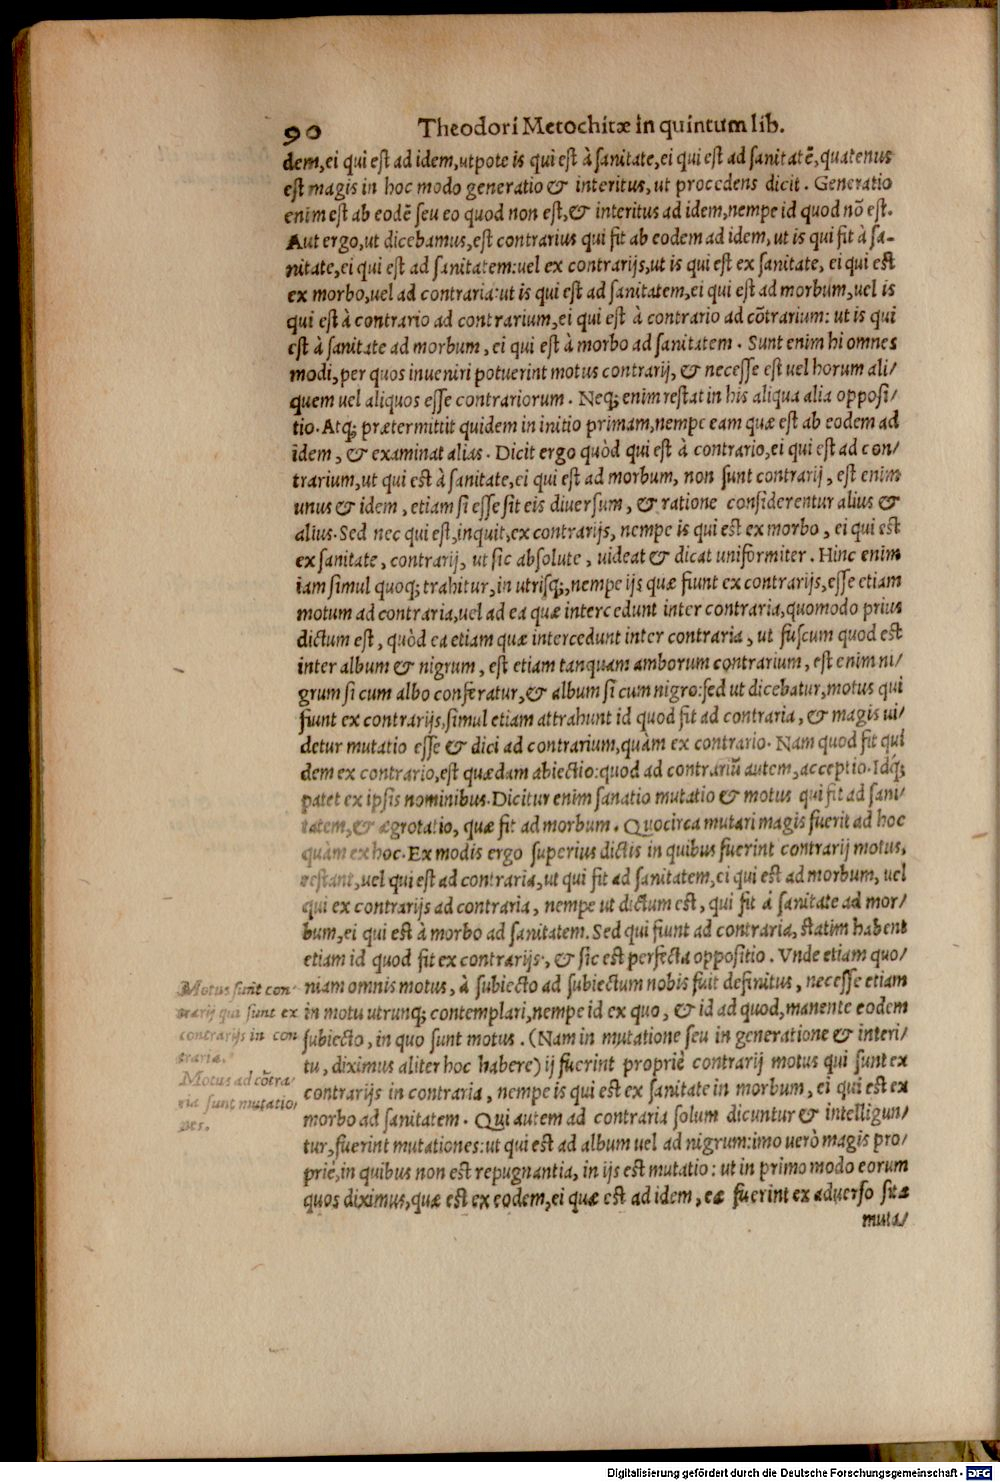 90 Theodori Metochitæ in quintum lib.
dem, ei qui est ad idem, utpote is qui est à sanitate, ei qui est ad sanitatē, quatenus
est magis in hoc modo generatio & interitus, ut procedens dicit. Generatio
enim est ab eodē seu eo quod non est, & interitus ad idem, nempe id quod nō est.
Aut ergo, ut dicebamus, est contrarius qui fit ab eodem ad idem, ut is qui fit à sa-
nitate, ei qui est ad sanitatem: uel ex contrarijs, ut is qui est ex sanitate, ei qui est
ex morbo, uel ad contraria: ut is qui est ad sanitatem, ei qui est ad morbum, uel is
qui est à contrario ad contrarium, ei qui est à contrario ad cōtrarium: ut is qui
est à sanitate ad morbum, ei qui est à morbo ad sanitatem. Sunt enim hi omnes
modi, per quos inueniri potuerint motus contrarij, & necesse est uel horum ali/
quem uel aliquos esse contrariorum. Neq; enim restat in his aliqua alia opposi/
tio. Atq; prætermittit quidem in initio primam, nempe eam quæ est ab eodem ad
idem, & examinat alias. Dicit ergo quòd qui est à contrario, ei qui est ad con/
trarium, ut qui est à sanitate, ei qui est ad morbum, non sunt contrarij, est enim
unus & idem, etiam si esse sit eis diuersum, & ratione considerentur alius &
alius. Sed nec qui est, inquit, ex contrarijs, nempe is qui est ex morbo, ei qui est
ex sanitate, contrarij, ut sic absolute, uideat & dicat uniformiter. Hinc enim
iam simul quoq; trahitur, in utrisq;, nempe ijs quæ fiunt ex contrarijs, esse etiam
motum ad contraria, uel ad ea quæ intercedunt inter contraria, quomodo prius
dictum est, quòd ea etiam quæ intercedunt inter contraria, ut fuscum quod est
inter album & nigrum, est etiam tanquam amborum contrarium, est enim ni/
grum si cum albo conferatur, & album si cum nigro: sed ut dicebatur, motus qui
fiunt ex contrarijs, simul etiam attrahunt id quod fit ad contraria, & magis ui/
detur mutatio esse & dici ad contrarium, quàm ex contrario. Nam quod fit qui
dem ex contrario, est quædam abiectio: quod ad contrariū autem, acceptio. Idq;
patet ex ipsis nominibus. Dicitur enim sanatio mutatio & motus qui fit ad sani/
tatem, & ægrotatio, quæ fit ad morbum. Quocirca mutari magis fuerit ad hoc
quàm ex hoc. Ex modis ergo superius dictis in quibus fuerint contrarij motus,
restant, uel qui est ad contraria, ut qui fit ad sanitatem, ei qui est ad morbum, uel
qui ex contrarijs ad contraria, nempe ut dictum est, qui fit à sanitate ad mor/
bum, ei qui est à morbo ad sanitatem. Sed qui fiunt ad contraria, statim habent
etiam id quod fit ex contrarijs, & sic est perfecta oppositio. Vnde etiam quo/
niam omnis motus, à subiecto ad subiectum nobis fuit definitus, necesse etiam
in motu utrunq; contemplari, nempe id ex quo, & id ad quod, manente eodem
subiecto, in quo sunt motus. (Nam in mutatione seu in generatione & interi/
tu, diximus aliter hoc habere) ij fuerint propriè contrarij motus qui sunt ex
contrarijs in contraria, nempe is qui est ex sanitate in morbum, ei qui est ex
morbo ad sanitatem. Qui autem ad contraria solum dicuntur & intelligun/
tur, fuerint mutationes: ut qui est ad album uel ad nigrum: imo uerò magis pro/
priè, in quibus non est repugnantia, in ijs est mutatio: ut in primo modo eorum
quos diximus, quæ est ex eodem, ei quæ est ad idem, eæ fuerint ex aduerso sitæ
muta/
Motus sunt con
trarij qui sunt ex
contrarijs in con
traria.
Motus ad cōtra/
ria sunt mutatio/
nes.
Digitalisierung gefördert durch die Deutsche Forschungsgemeinschaft - DFG